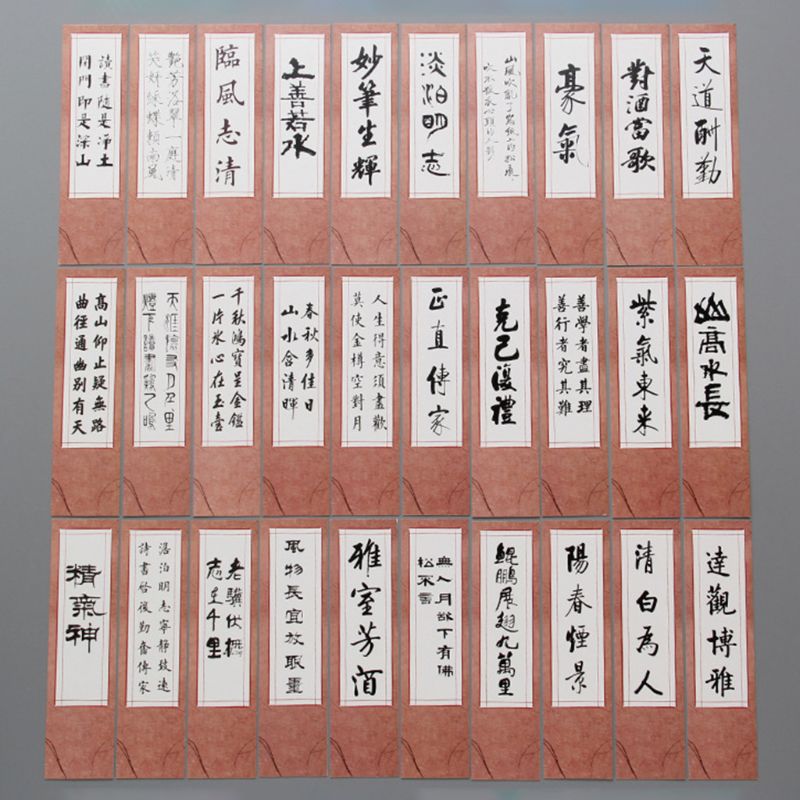 讀書隨是淨土
閉門即是深山
臨風志清
上善若水
妙筆生輝
淡泊明志
山風吹亂了窗紙上的松痕
吹不散我心頭的人影
豪氣
對酒當歌
天道酬勤
高山仰止疑無路
曲径通幽别有天
一片冰心在玉壺
春秋多佳日
山水含清暉
人生得意須盡歡
莫使金樽空對月
正直傳家
克己復禮
善學者盡其理
善行者究其難
紫氣東来
山高水長
精氣神
澹泊明志寧靜致遠
詩書啓後勤奮傳家
老驥伏櫪
志在千里
風物長宜放眼量
雅室芳酒
鯤鵬展翅九萬里
陽春煙景
清白為人
達觀博雅